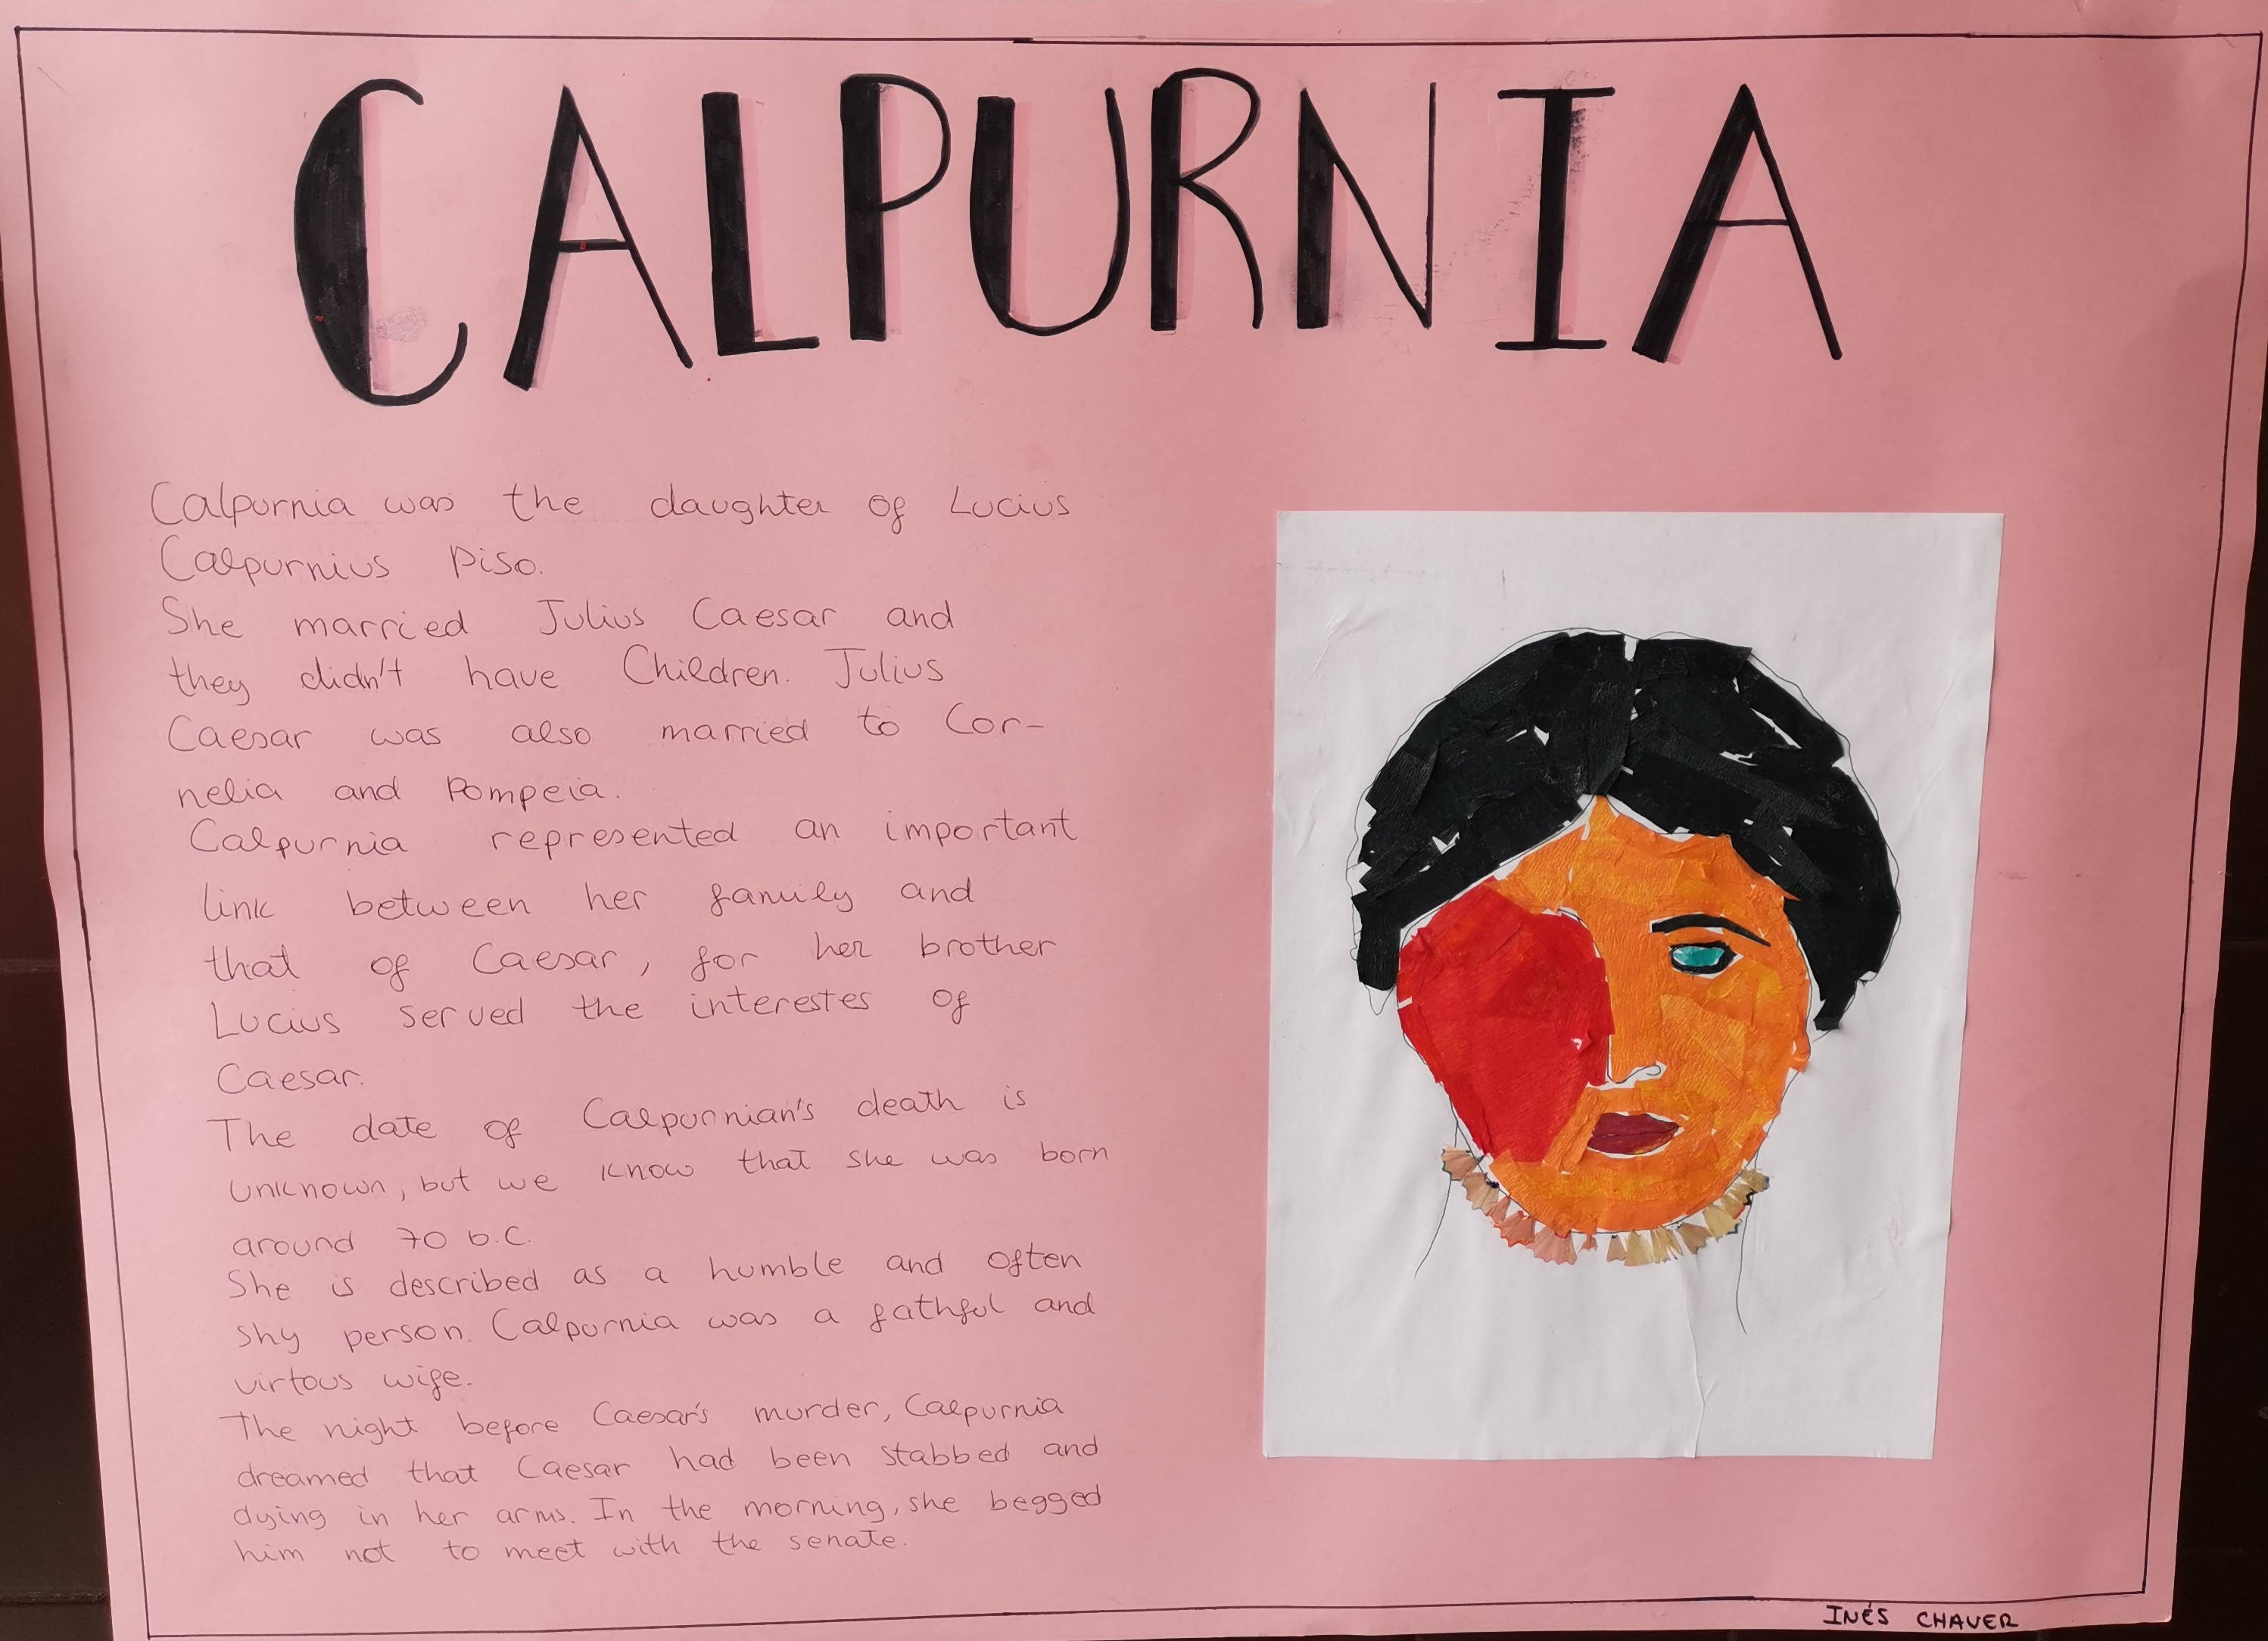 CALPURNIA
Calpurnia was the daughter of Lucius
Calpurnius Piso.
She married Julius Caesar and
they didn't have Children. Julius
Caesar was also married to Cor-
nelia and Pompeia.
Calpurnia represented an important
link between her family and
that of Caesar, for her brother
Lucius served the interestes of
Caesar.
The date of Calpurnian's death is
unknown, but we know that she was born
around 70 b.C.
She is described as a humble and often
shy person. Calpurnia was a fathful and
virtous wife.
The night before Caesar's murder, Calpurnia
dreamed that Caesar had been stabbed and
dying in her arms. In the morning, she begged
him not to meet with the senate.
INÉS CHAVER